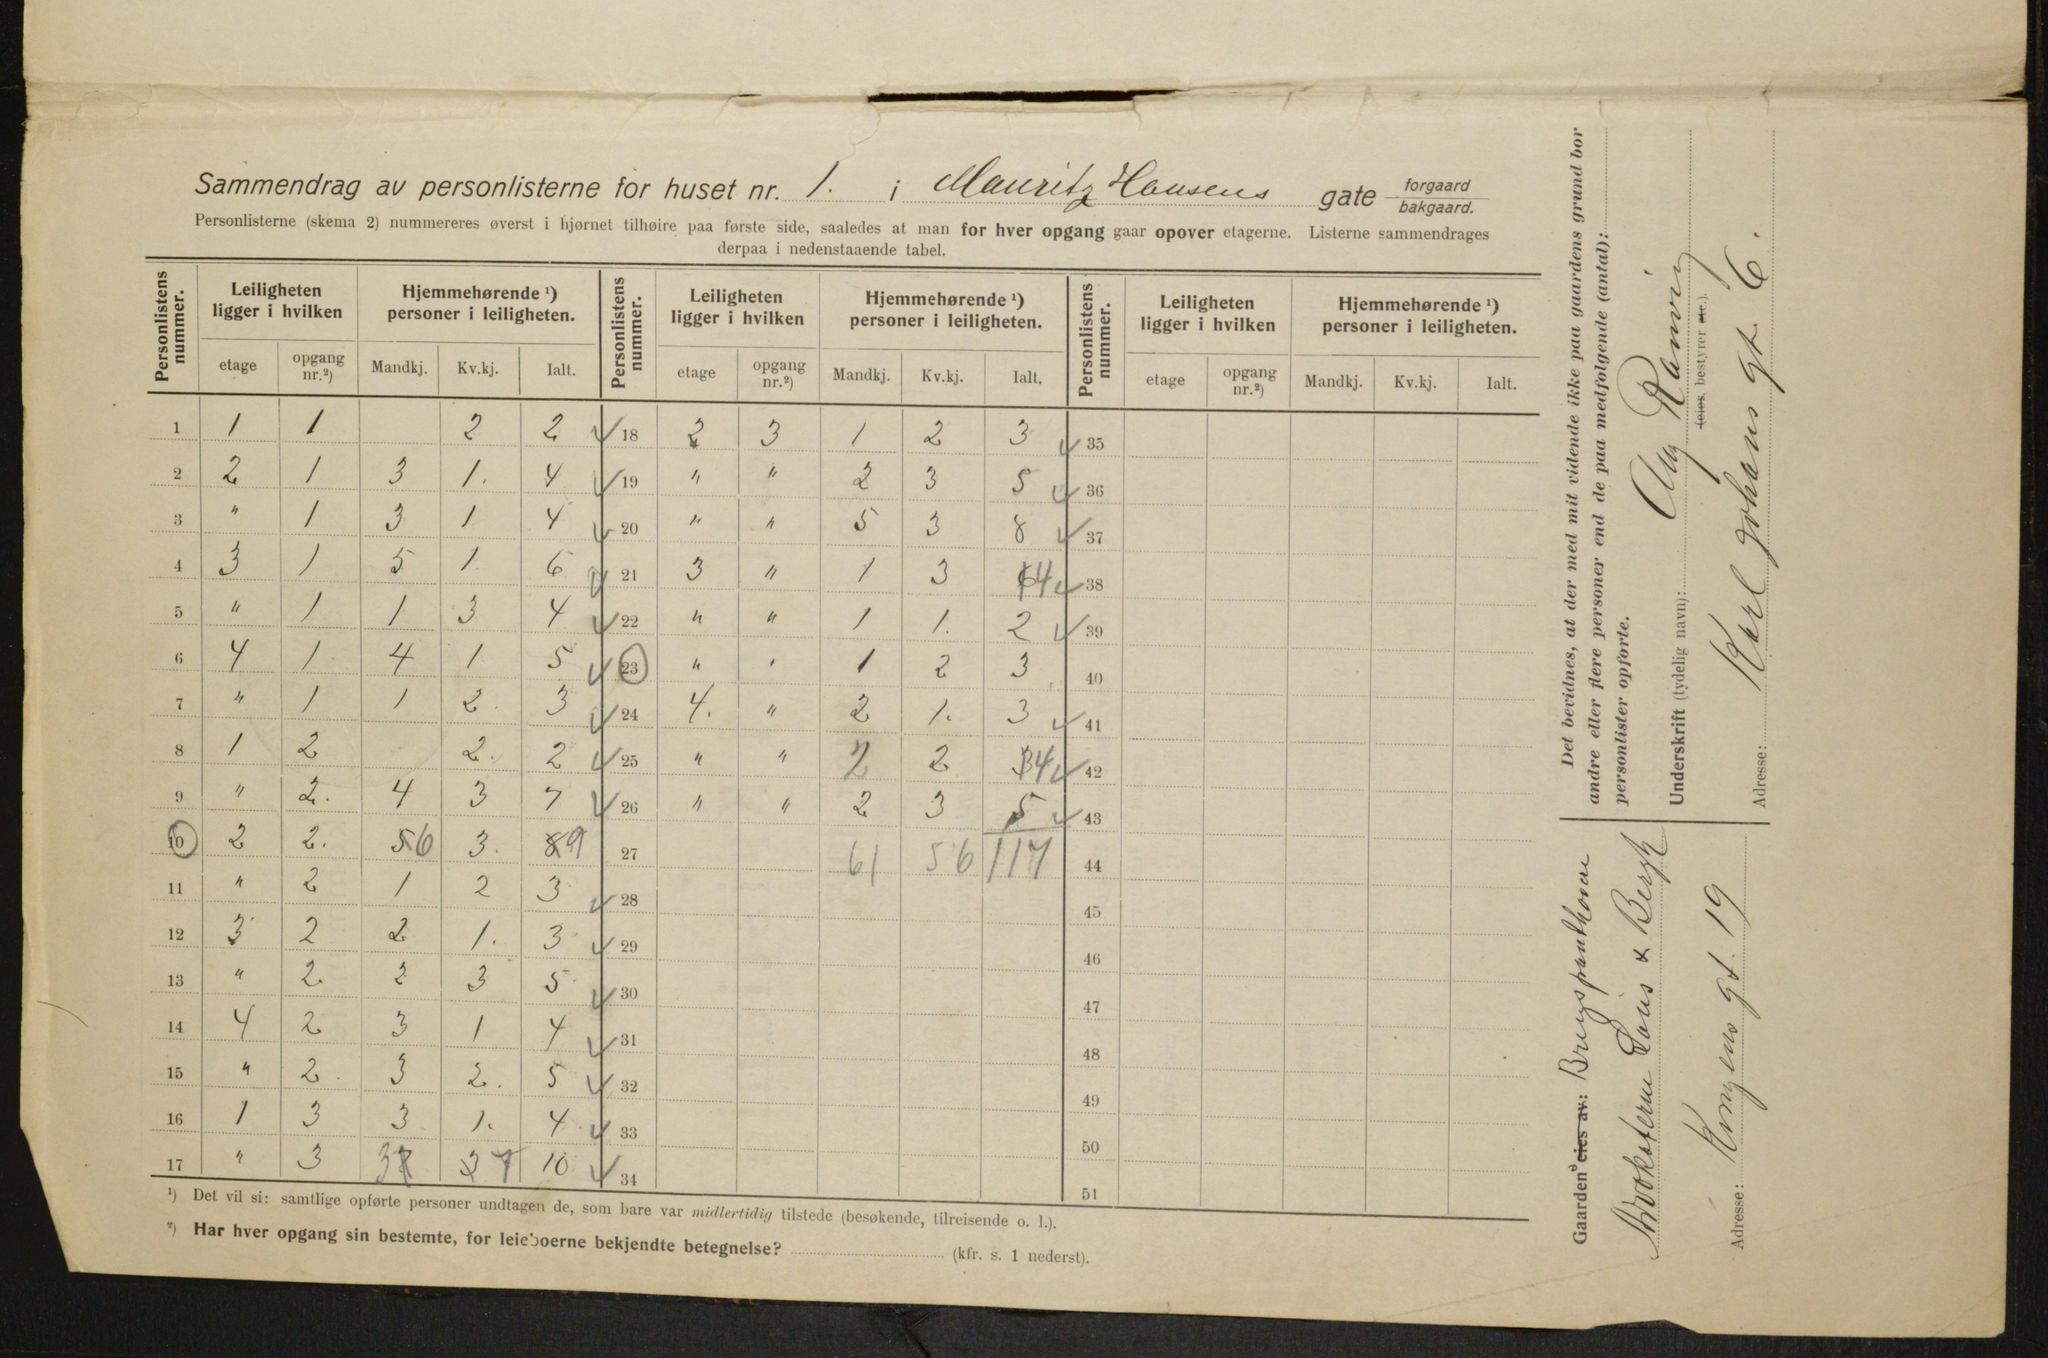 Sammendrag av personlisterne for huset nr. 1. i Mauritz Hansens gate forgaard bakgaard.
Personlisterne (skema 2) nummereres øverst i hjørnet tilhøire paa første side, saaledes at man for hver opgang gaar opover etagerne. Listerne sammendrages
derpaa i nedenstaaende tabel.
Personlistens nummer. Leiligheten ligger i hvilken Hjemmehørende ¹) personer i leiligheten. Personlistens nummer. Leiligheten ligger i hvilken Hjemmehørende ¹) personer i leiligheten. Personlistens nummer. Leiligheten ligger i hvilken Hjemmehørende ¹) personer i leiligheten.
etage opgang nr.²) Mandkj. Kv.kj. Ialt. etage opgang nr.²) Mandkj. Kv.kj. Ialt. etage opgang nr.²) Mandkj. Kv.kj. Ialt.
1 1 1 2 2 18 2 3 1 2 3 35
2 2 1 3 1. 4 19 " " 2 3 5 36
3 " 1 3 1 4 20 " " 5 3 8 37
4 3 1 5 1. 6 21 3 " 1 3 4 38
5 " 1 1 3 4 22 " " 1 1. 2 39
6 4 1 4 1 5 23 " " 1 2 3 40
7 " 1 1 2. 3 24 4. " 2 1. 3 41
8 1 2 2. 2 25 " " 2 2 34 42
9 " 2. 4 3 7 26 " " 2 3 5 43
10 2 2. 56 3. 89 27 61 56 117 44
11 " 2 1 2 3 28 45
12 3 2 2 1. 3 29 46
13 " 2 2 3 5 30 47
14 4 2 3 1 4 31 48
15 " 2. 3 2. 5 32 49
16 1 3 3 1. 4 33 50
17 " 3 3 7 10 34 51
¹) Det vil si: samtlige opførte personer undtagen de, som bare var midlertidig tilstede (besøkende, tilreisende o. l.).
²) Har hver opgang sin bestemte, for leieboerne bekjendte betegnelse? (kfr. s. 1 nederst).
Det bevidnes, at der med mit vidende ikke paa gaardens grund bor
andre eller flere personer end de paa medfølgende (antal):
personlister opførte.
Underskrift (tydelig navn): Aug Ramvig
(eies, bestyrer etc.).
Adresse: Karl Johans gt. 6.
Gaarden eies av:
Advokaterne &
Adresse: Kongens gt. 19